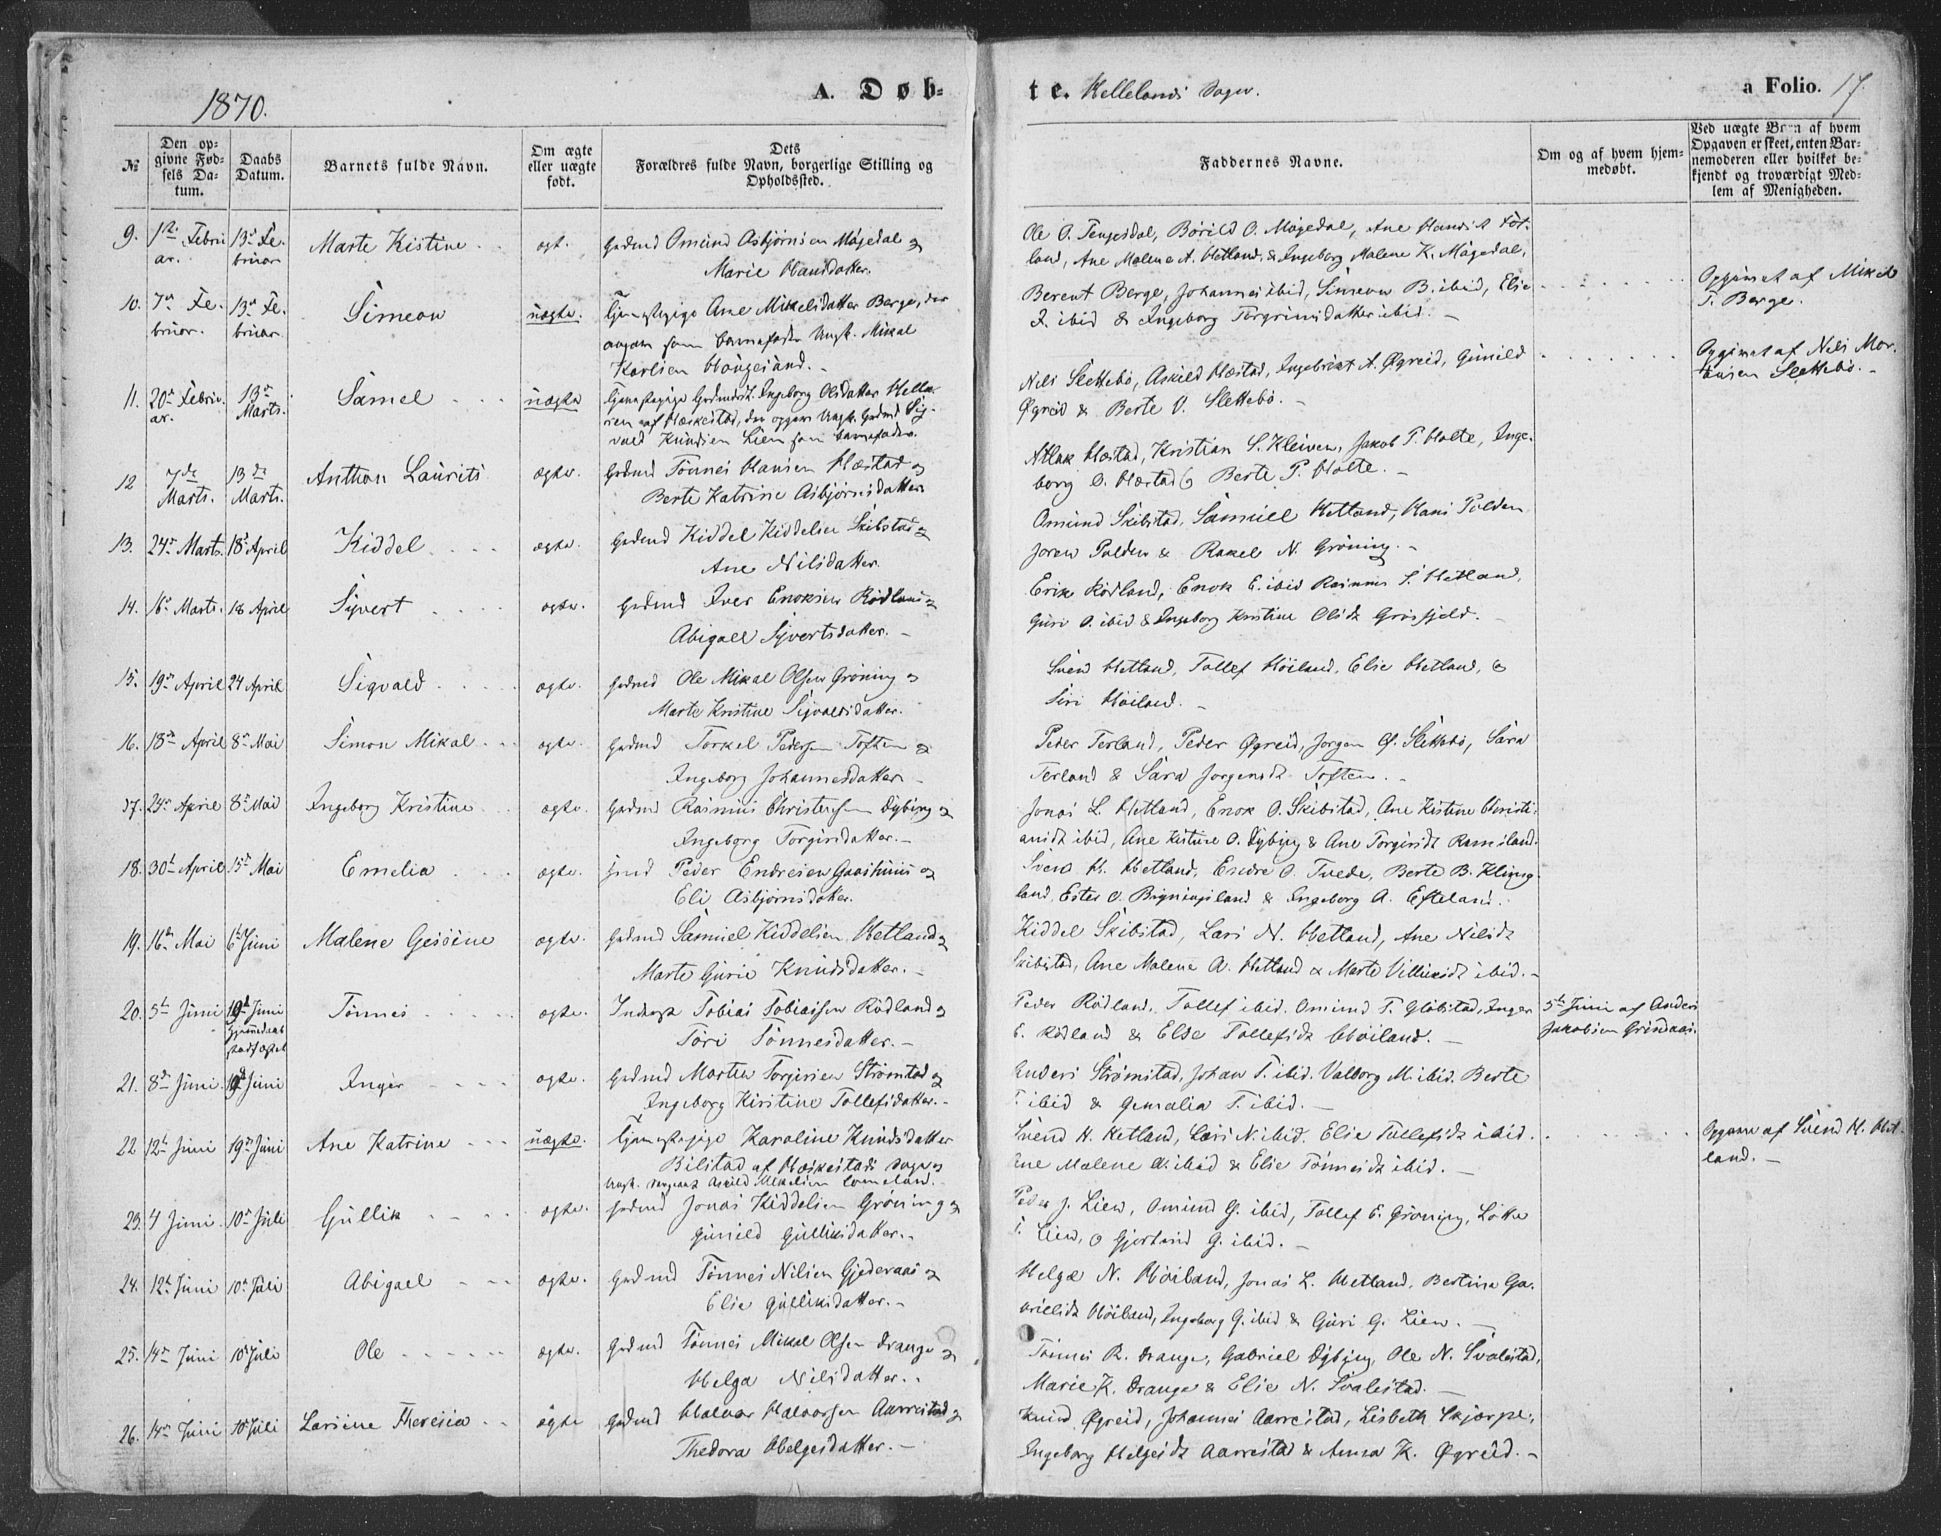 1870.
A. Døb-
te. Hellelands Sogn.
a Folio. 17.
№
Den opgivne Fødsels Datum.
Daabs Datum.
Barnets fulde Navn.
Om ægte eller uægte født.
Dets Forældres fulde Navn, borgerlige Stilling og Opholdssted.
Faddernes Navne.
Om og af hvem hjemmedøbt.
Ved uægte Barn af hvem Opgaven er skeet, enten Barnemoderen eller hvilket bekjendt og troværdigt Medlem af Menigheden.
9. 1ste Februar. 13de Februar Marte Kistine ægt. Gaardmd Omund Asbjørnsen Mågedal og
Marie Hansdatter.
Ole O. Tengesdal, Börild O. Mågedal, Ane Hansdt Fotland, Ane Malene A. Hetland, & Ingeborg Malene K. Mågedal,
10. 7de Februar. 13de Februar Simeon uægte. Tjenestepige Ane Mikelsdatter Berge, der
angav som Barnefader Ungk. Mikal
Karlsen Haugesund.
Berent Berge, Johannes ibid, Simeon B. ibid, Elie
T. ibid & Ingeborg Torgrimsdatter ibid.
Opgivet af Mikel
T. Berge.
11. 20de Februar. 13de Marts. Samel uægte Tjenestepige Ingeborg Olsdatter
af Hæskestad, der opgav Ungk. Gudmd Sigvald Knudsen Lien som Barnefader.
Nils Slettebö, Askild Hæstad, Ingebrigt A. Øgreid, Gunild
Øgreid & Berte V. Slettebö.
Opgivet af Nils Mortensen Slettebö.
12 7de Marts. 13de Marts. Anthon Laurits ægte. Gaardmd Tönnes Hansen Hæstad og
Berte Katrine Asbjørnsdatter
Atlak Hæstad, Kristian S. Kleiven, Jakob P. Holte, Ingeborg O. Hæstad & Berte P. Holte.
13. 24de Marts. 18de April Kiddel ægte. Gaardmd Kiddel Kiddelsen Skibstad og
Ane Nilsdatter.
Omund Skibstad, Samuel Hetland, Hans Polden
Joren Polden & Rakel N. Gröning.
14. 16de Marts. 18 April Syvert ægte. Gaardmd Iver Enoksen Rödland og
Abigael Syvertsdatter.
Erik Rödland, Enok E. ibid Rasmus S. Hetland,
Guri O. ibid & Ingeborg Kristine Olsdt Grösfjeld.
15. 19de April 24 April Sigvald ægte. Gaardmd Ole Mikal Olsen Gröning og
Marte Kristine Sigvaldsdatter.
Svend Hetland, Tollef Höiland, Elie Hetland, &
Siri Höiland.
16. 18de April 8de Mai Simon Mikal ægte. Gaardmd Torkel Pedersen Toften og
Ingeborg Johannesdatter
Peder Terland, Peder Øgreid, Jørgen G. Slettebö, Sara
Terland & Sara Jørgensdt Toften.
17. 24de April 8de Mai Ingeborg Kristine ægte. Gaardmd Rasmus Christensen Dybing og
Ingeborg Torgersdatter.
Jonas L. Hetland, Enok O. Skibstad, Ane Kistine Christiansdt ibid, Ane Kistine O. Dybing & Ane Torgersdt Ramsland.
18. 30de April 15de Mai Emelia ægte. Gmd Peder Endresen Gaashuus og
Eli Asbjørnsdatter.
Svend H. Hetland, Endre O. Tvede, Berte B. Klungland, Ester O. Bryningsland & Ingeborg A. Efteland.
19. 16de Mai 6te Juni Malene Gesöine ægte. Gaardmd Samuel Kiddelsen Hetland og
Marte Gurie Knudsdatter.
Kiddel Skibstad, Lars N. Hetland, Ane Nilsdt
Skibstad, Ane Malene A. Hetland & Marte Villiksdt ibid.
20. 5te Juni 19de Juni Hjemmedaab stadfæstet Tönnes ægte. Inderst Tobias Tobiassen Rödland og
Tori Tönnesdatter.
Peder Rödland, Tollef ibid. Omund T. Glöbstad, Inger
E. Rödland & Else Tollefsdt Höiland.
5te Juni af Anders
Jakobsen Grösdaas.
21. 8de Juni 19de Juni Inger ægte. Gaardmd Morten Torgersen Strömstad og
Ingeborg Kirstine Tollefsdatter.
Anders Strömstad, Johan T. ibid. Valborg M. ibid. Berte
T. ibid & Gemalia T. ibid.
22 12te Juni 19de Juni Ane Katrine uægte. Tjenestepige Karoline Knudsdatter
Bilstad af Hæskestads Sogn og
Ungk. Askild Mikelsen
Svend H. Hetland, Lars N. ibid. Elie Tollefsdt ibid.
Ane Malene A. ibid & Elie Tönnesdt ibid.
Opgave af Svend H. Hetland.
23. 4 Juni 10de Juli Gullik ægte. Gaardmd Jonas Kiddelsen Gröning og
Gunild Gulliksdatter.
Peder J. Lien, Omund G. ibid, Tollef E. Gröning, Lotte
T. Lien, & Gjertrud G. ibid.
24. 12te Juni 10de Juli Abigael ægte. Gaardmd Tönnes Nilsen Gjederaas og
Elie Gulliksdatter.
Helge N. Höiland, Jonas L. Hetland, Bertine Gabrielsdt Höiland, Ingeborg G. ibid & Guri G. Lien.
25. 14de Juni 10de Juli Ole ægte. Gaardmd Tönnes Mikal Olsen Drange og
Helga Nilsdatter.
Tönnes R. Drange, Gabriel Dybing, Ole N. Svalestad,
Marie K. Drange & Elie N. Svalestad.
26. 14de Juni 10de Juli Larsine Theresia ægte Gaardmd Halvor Halvorsen Aarrestad og
Thedora Helgesdatter.
Knud Øgreid, Johannes Aarrestad, Lisbeth Skjørpe,
Ingeborg Helgesdt Aarrestad & Anna K. Øgreid.